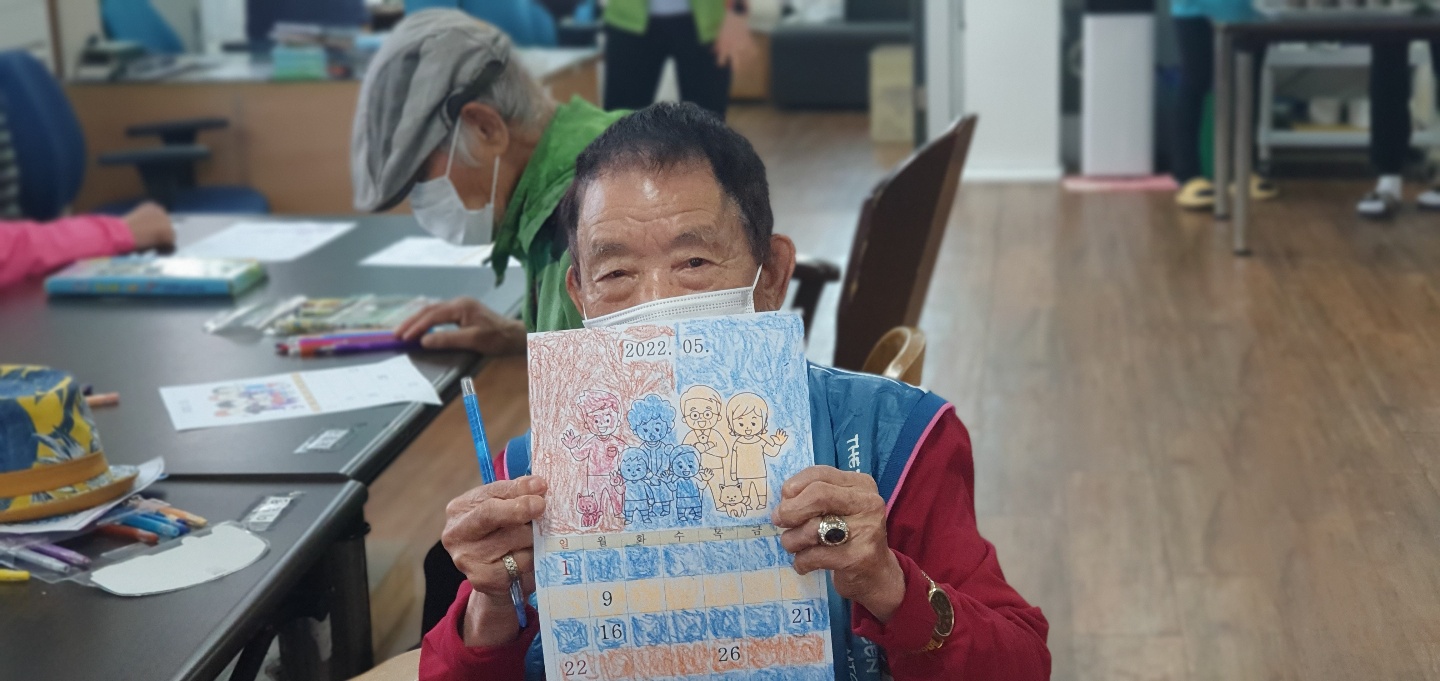 2022. 05.
일 월 화 수 목 금
1
9
16 21
22 26
THE